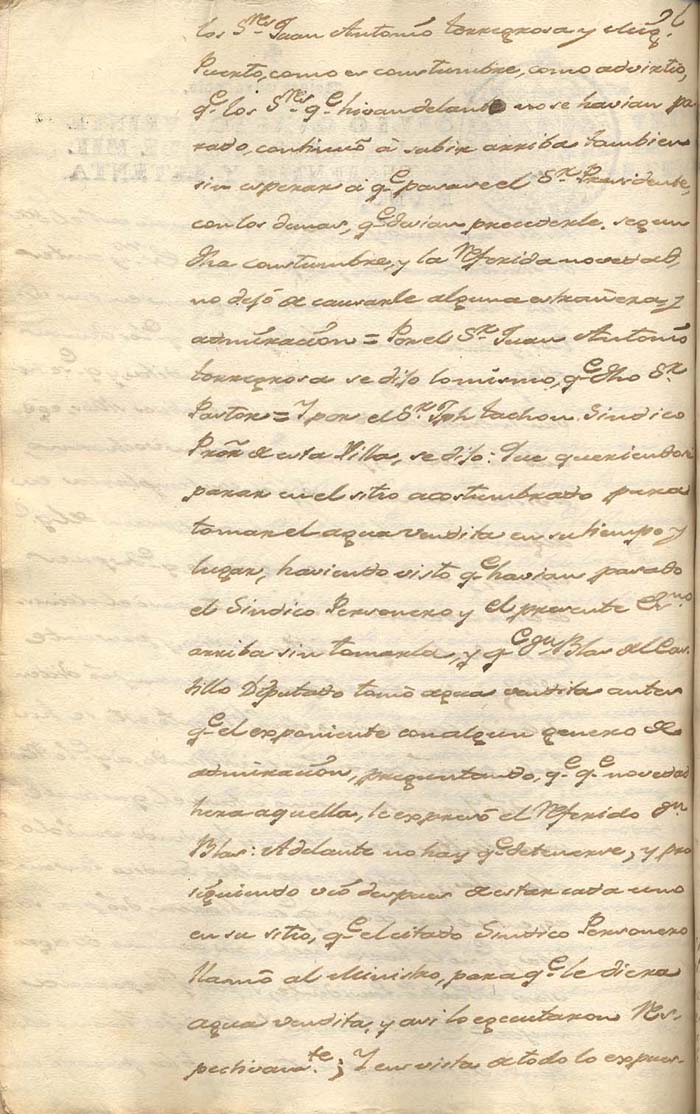 los S.res Juan Antonio torregrosa y
Puerto, como es constumbre, como advirtio,
q.e los S.res q.e hivan delante no se havian pa
rado, continuó à subir arriba tambien
sin esperar á q.e parase el S.r Presidente,
con los demas, q.e devian precederle, segun
dha constumbre, y la referida novedad,
no dejó de causarle alguna estrañeza y
admiración = Por el S.r Juan Antonio
torregrosa se dijo lo mismo, q.e dho S.r
Pastor = Y por el S.r Jph tachon Sindico
Pror de esta Villa, se dijo: Que queriendo
parar en el sitio acostumbrado para
tomar el agua vendita en su tiempo y
lugar, haviendo visto q.e havian pasado
el Sindico Personero y el presente Es.no
arriba sin tomarla, y q.e d.n Blas del Cas
tillo Diputado tomó agua vendita antes
q.e el exponiente con algun genero de
admiración, preguntando, q.e q.e novedad
hera aquella, le expresó el referido d.n
Blas: Adelante no hay q.e detenerse; y pro
siguiendo vió despues de estar cada uno
en su sitio, q.e el citado Sindico Personero
llamó al Ministro, para q.e le diera
agua vendita, y asi lo egecutaron res-
pectivam.te; Y en vista de todo lo expres-